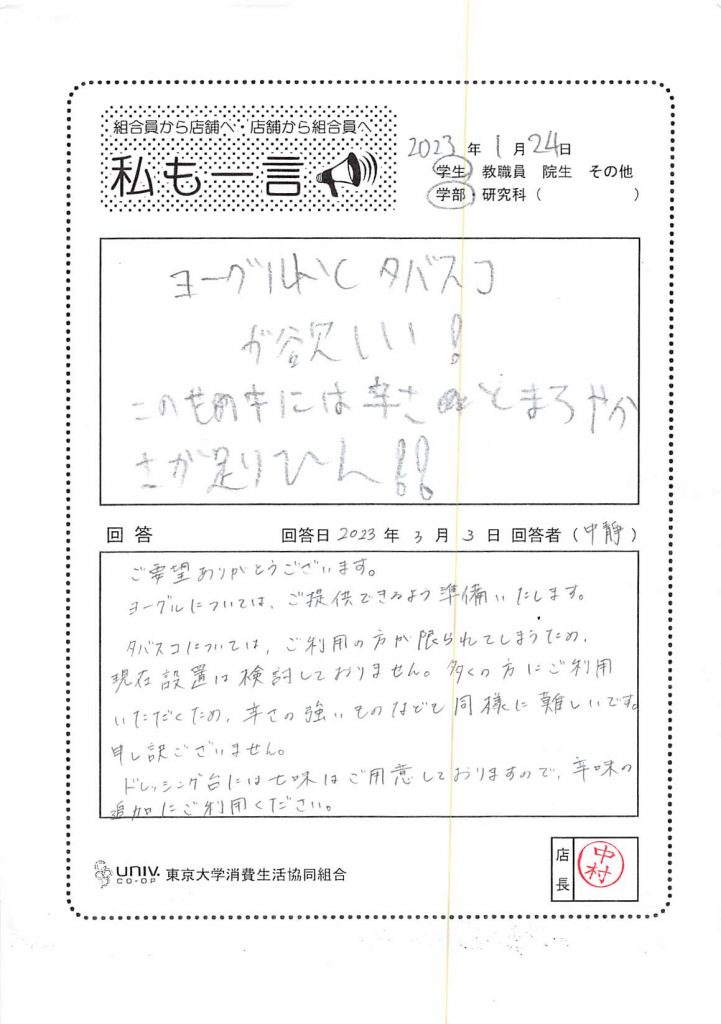 組合員から店舗へ・店舗から組合員へ
私も一言
2023年1月24日
学生 教職員 院生 その他
学部・研究科( )
ヨーグルトと タバスコ
が欲しい!
このせの中には辛さとまろやか
さが足りひん!!
回答 回答日2023年3月3日 回答者(中靜)
ご要望ありがとうございます。
ヨーグルについては、ご提供できるよう準備いたします。
タバスコについては、ご利用の方が限られてしまうため、
現在設置は検討しておりません。多くの方にご利用
いただくため、辛さの強いものなども同様に難しいです。
申し訳ございません。
ドレッシング台には七味はご用意しておりますので、辛味の
追加にご利用ください。
UNIV. CO-OP 東京大学消費生活協同組合
店長 中村